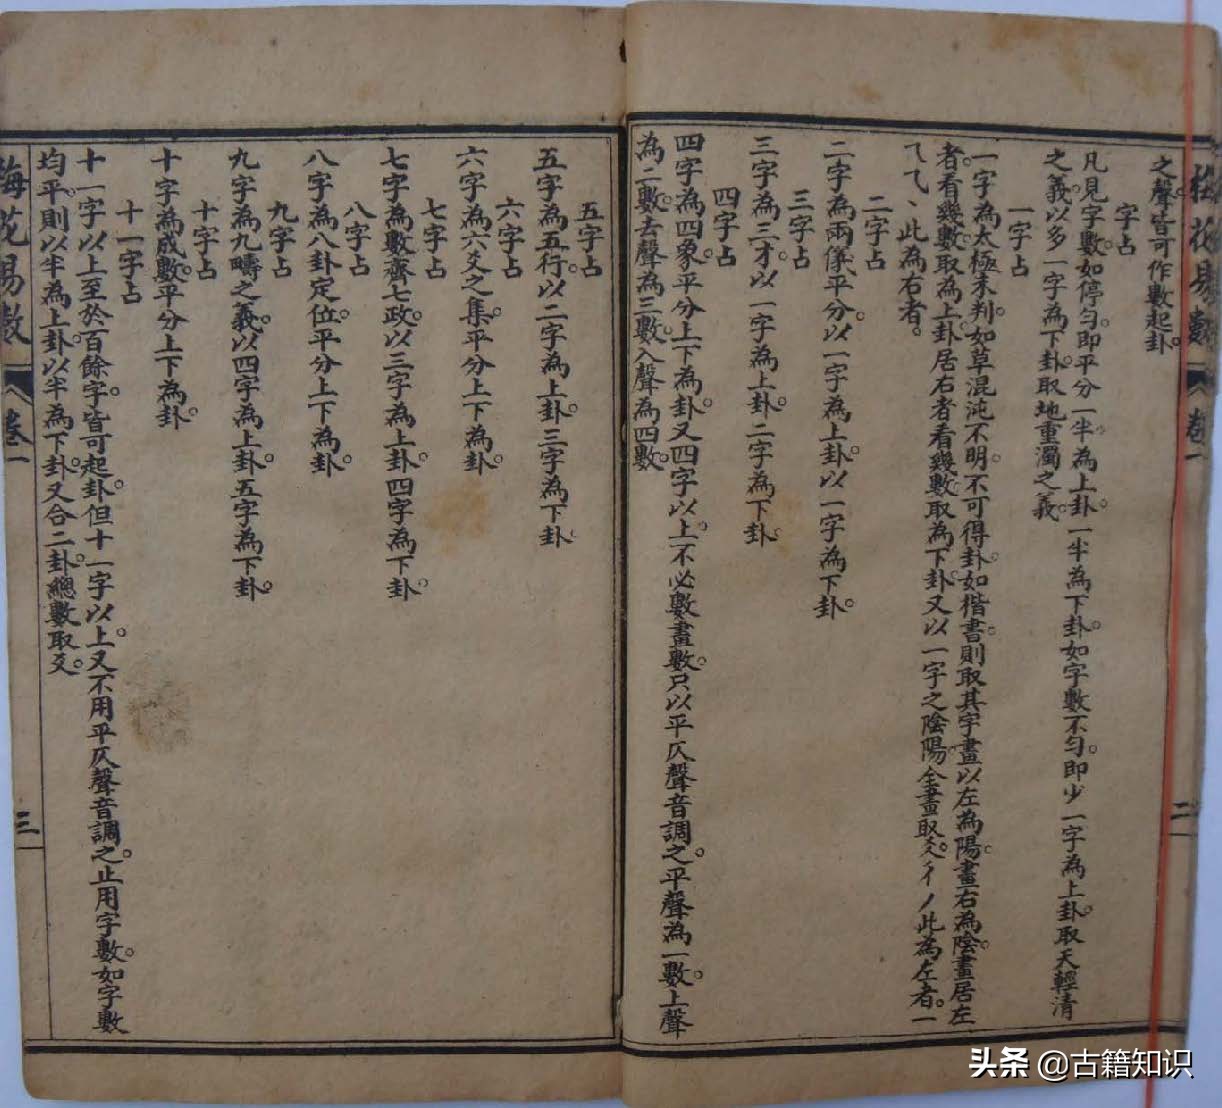 梅花易數 卷一 二
之聲。皆可作數起卦。
字占
凡見字數。如停匀。即平分一半為上卦。一半為下卦。如字數不匀。即少一字為上卦。取天輕清
之義。以多一字為下卦。取地重濁之義。
一字占
一字為太極未判。如草混沌不明。不可得卦。如楷書。則取其字畫。以左為陽畫。右為陰畫。居左
者看幾數。取為上卦。居右者看幾數。取為下卦。又以一字之陰陽全畫取爻。彳丿此為左者。一
乁乀丶此為右者。
二字占
二字為兩儀平分。以一字為上卦。以一字為下卦。
三字占
三字為三才。以一字為上卦。二字為下卦。
四字占
四字為四象。平分上下為卦。又四字以上。不必數畫數。只以平仄聲音調之。平聲為一數。上聲
為二數。去聲為三數。入聲為四數。
五字占
五字為五行。以二字為上卦。三字為下卦。
六字占
六字為六爻之集。平分上下為卦。
七字占
七字為數齊七政。以三字為上卦。四字為下卦。
八字占
八字為八卦定位。平分上下為卦。
九字占
九字為九疇之義。以四字為上卦。五字為下卦。
十字占
十字為成數。平分上下為卦。
十一字占
十一字以上至於百餘字。皆可起卦。但十一字以上。又不用平仄聲音調之。止用字數。如字數
均平。則以半為上卦。以半為下卦。又合二卦總數取爻。
梅花易數 卷一 三
头条 @古籍知识